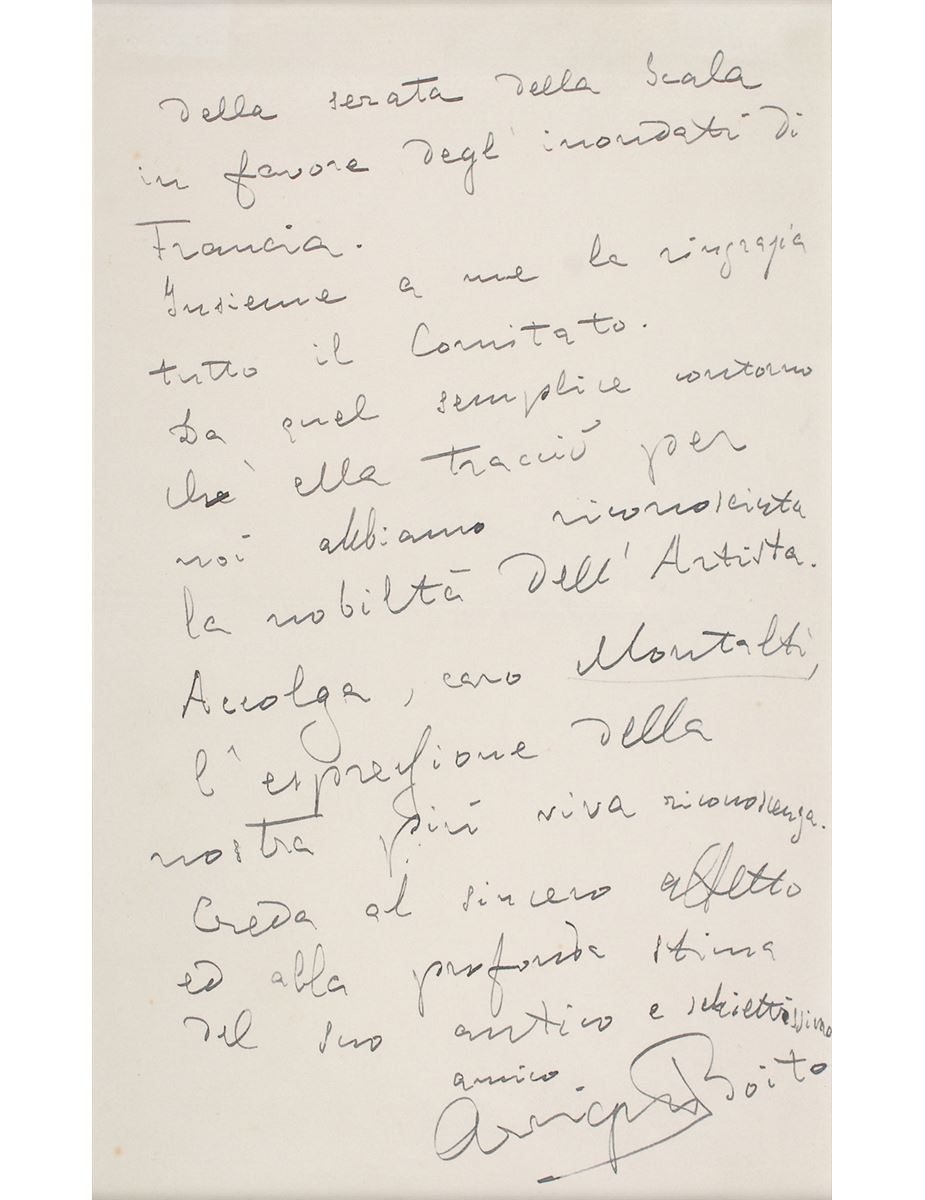 della serata della Scala
in favore degl' inondati di
Francia.
Insieme a me la ringrazia
tutto il Comitato.
Da quel semplice contorno
che ella tracciò per
noi abbiamo riconosciuta
la nobiltà dell' Artista.
Accolga, caro Montalti,
l'espressione della
nostra più viva riconoscenza.
Creda al sincero affetto
ed alla profonda stima
del suo antico e schiettissimo
amico
Arrigo Boito